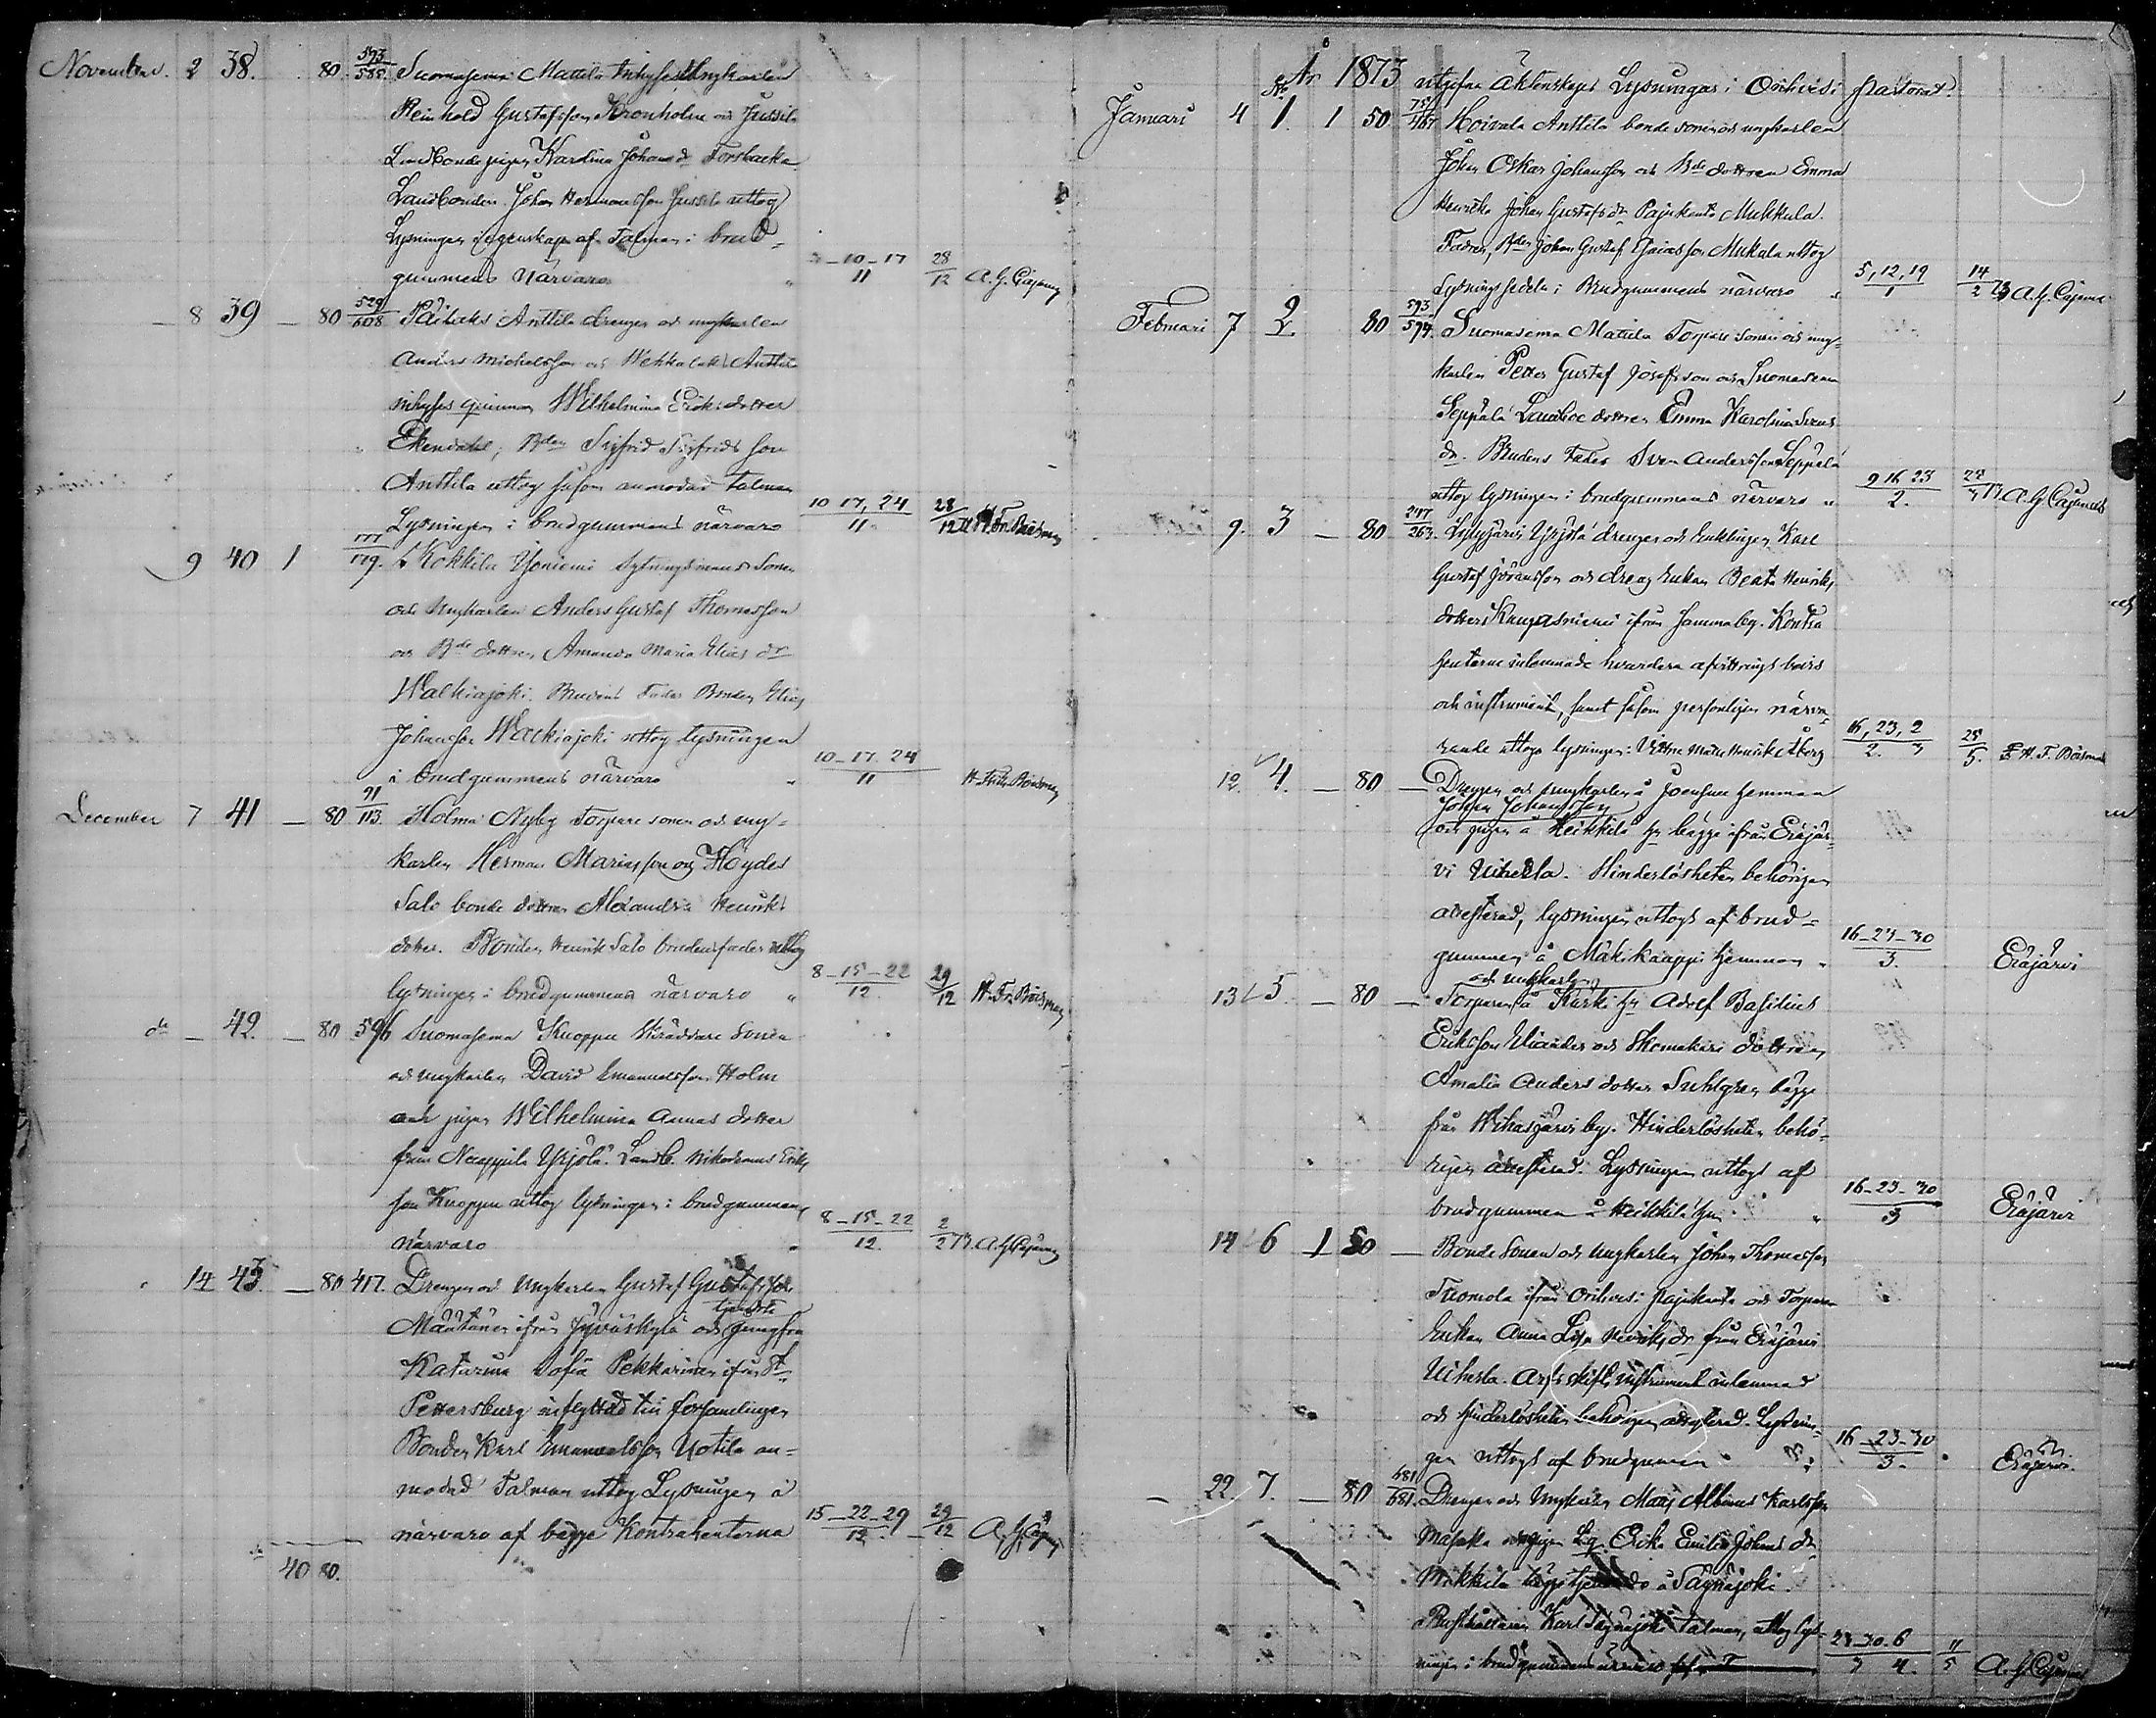 November. 2 38. 80. 593/585. Suomasema Mattila Inhyses Ungkarlen
Reinhold Gustafsson Kronholm och Jussila
Landbonde pigan Karolina Johans dr Forsbacka
Landbonden Johan Hermansson Jussila uttog
Lysningen i egenskap af Talman i brud-
gummens närvaro 3-10-17/11 28/12 A. G. Cajanus
— 8 39 — 80 529/608 Anttila drengen och ungkarlen
Anders Michelsson och Anttila
inhyses qvinnan Wilhelmina Eriksdotter
Ekendahl; Bden Sigfrid Sigfridsson
Anttila uttog såsom anmodad talman
Lysningen i brudgummens närvaro 10 17, 24/11 28/12 H. Fr. Boisman
9 40 1 177/179. Kokkila Yöniemi Sytningsmans Sonen
och Ungkarlen Anders Gustaf Thomasson
och Bde dottren Amanda Maria Elias dr
Walkiajoki. Brudens Fader Bonden Elias
Johansson Walkiajoki uttog lysningen
i brudgummens närvaro 10-17. 24/11 H. Fr. Boisman
December 7 41 — 80 91/113. Holma Nyby Torpare sonen och ung-
karlen Herman Mariasson och Höydes
Salo bonde dottren Alexandra Henriks
dotter. Bonden Henrik Salo brudens fader uttog
lysningen i brudgummens närvaro 8-15-22/12. 29/12 H. Fr. Boisman
do — 42. — 80 596 Suomasema Knoppu Skräddare Sonen
och ungkarlen David Emanuelsson Holm
och pigan Wilhelmina Annas dotter
från Naappila Yrjölä. Landb. Nikodemus Eriks
son Knoppu uttog lysningen i brudgummens
närvaro 8-15-22/12. 2/2 73. A. G. Cajanus
14 43. — 80 417. Drengen och Ungkarlen Gustaf Gustafsson
Määttänen ifrån Jyväskylä och tjenste jungfru
Katarina Sofia Pekkarinen ifrån St
Pettersburg inflyttad till församlingen
Bonden Karl Emanuelsson Uotila an-
modad Talman uttog Lysningen i
närvaro af begge Kontrahenterna 15-22-29/12 29/12 A. G. Cajanus
40 80.
År 1873 utgifna Äktenskaps Lysningar i Orihvesi pastorat.
No
Januari 4 1. 1 50 Hoivala Anttila bonde sonen och ungkarlen
Johan Oskar Johansson och Bde dottren Emma
Henrika Johan Gustafs dr Pajukanta Mukkula.
Fadren, Bden Johan Gustaf Mukkula uttog
Lysningssedeln i Brudgummens närvaro 5, 12, 19/1 14/2 73 A. G. Cajanus
Februari 7 2. 80 593/594. Suomasema Mattila Torpare sonen och ung-
karlen Petter Gustaf Josefsson och Suomasema
Seppälä Landboe dottren Emma Karolina Svens
dr. Brudens Fader Sven Andersson Seppälä
uttog lysningen i brudgummens närvaro 9 16 23/2. A. G. Cajanus
9. 3 — 80 247/263. Yrjölä drengen och Enklingen Karl
Gustaf Johansson och dreng Enkan Beata Henriks
dotter Kangasniemi ifrån samma by. Kontra
henterne inlemnade hvardera afvittrings bevis
och instrument, samt såsom personligen närva-
rande uttogo lysningen: 16, 23, 2/2. 3 25/5. H. F. Boisman
12. 4. — 80 — Drengen och ungkarlen å Joensuu hemman
Johan Johansson
och pigan å Heikkilä hn begge ifrån Eräjär-
vi Uiherla. Hinderlösheten behörigen
attesterad, lysningen uttogs af brud-
gummen å Mäkikaappi hemman 16-23-30/3. Eräjärvi
13 5. — 80 — Torparen och ungkarlen å Kärki hn Adolf Basilius
Eriksson och Skomakare dottren
Amalia Anders dotter Suhlgren begge
från Wihasjärvi by. Hinderlösheten behö-
rigen attesterad. Lysningen uttogs af
brudgummen å Heikkilä hn 16-23-30/3 Eräjärvi
14 6 1 50 — Bonde Sonen och Ungkarlen Johan Thomasson
Tuomola ifrån Orihvesi Pajukanta och Torpare
Enkan Anna Lisa Henriks dr från Eräjärvi
Uiherla. Arfskifts instrument inlemnad
och hinderlösheten behörigen attesterad. Lysnin-
gen uttogs af brudgummen 16-23-30/3. Eräjärvi.
— 22. 7. — 80 681/681. Drengen och Ungkarlen Maas Albinus Karlsson
och pigan Erika Emilia Johans dr
Mikkila begge å Säynäjoki.
Rusthållaren Karl Säynäjoki Talman, uttog lys-
ningen i brudgummens närvaro 23-30. 6/3 4. 11/5 A. G. Cajanus